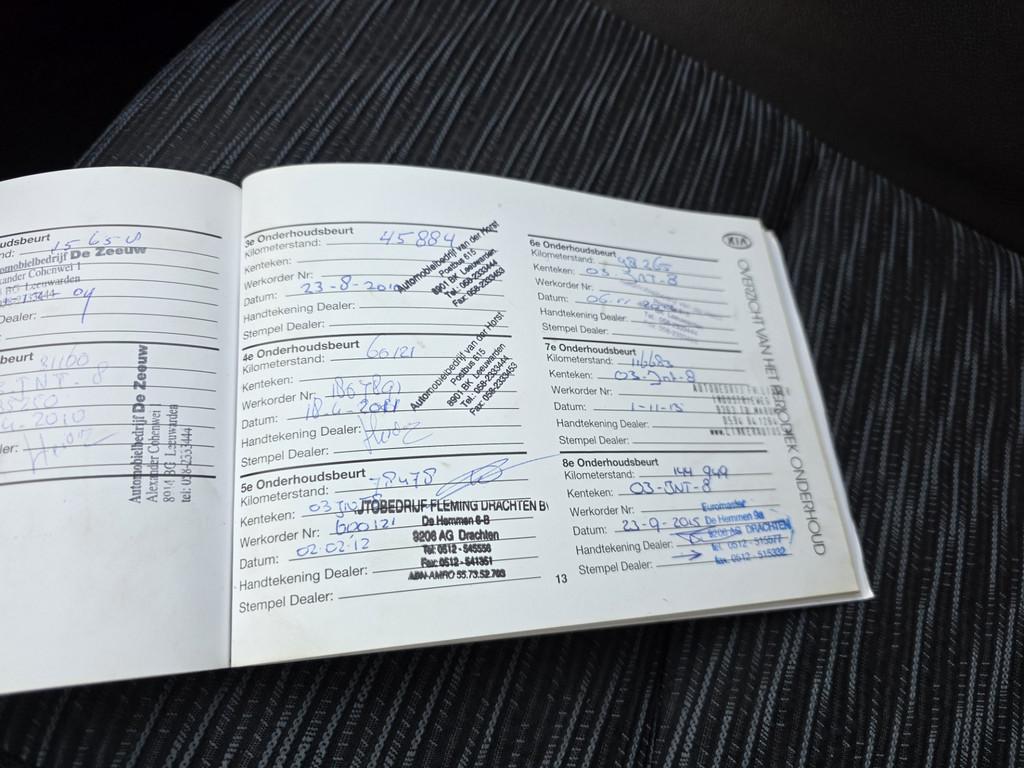 oudsbeurt
nd: 15650
Automobielbedrijf De Zeeuw
Alexander Cohenwei 1
BG Leeuwarden
Dealer:
beurt
31160
JNT-8
2010
Automobielbedrijf De Zeeuw
Alexander Cohenwei 1
8914 BG Leeuwarden
tel: 058-2333444
3e Onderhoudsbeurt
Kilometerstand: 45884
Kenteken:
Werkorder Nr:
Datum: 23-8-2010
Handtekening Dealer:
Stempel Dealer:
Automobielbedrijf van der Horst
Postbus 615
8901 BK Leeuwarden
Tel: 058-2333444
Fax: 058-2333453
4e Onderhoudsbeurt
Kilometerstand: 60121
Kenteken:
Werkorder Nr:
Datum: 18.4.2011
Handtekening Dealer:
Stempel Dealer:
Automobielbedrijf van der Horst
Postbus 615
8901 BK Leeuwarden
Tel: 058-2333444
Fax: 058-2333453
5e Onderhoudsbeurt
Kilometerstand: 78478
Kenteken: 03 JNT
Werkorder Nr: 600121
Datum: 02.02.12
Handtekening Dealer:
Stempel Dealer:
JTOBEDRIJF FLEMING DRACHTEN BV
De Hemmen 6-B
9206 AG Drachten
Tel: 0512 - 545556
Fax: 0512 - 541351
ABN-AMRO 55.73.52.703
13
KIA
OVERZICHT VAN HET PERIODIEK ONDERHOUD
6e Onderhoudsbeurt
Kilometerstand: 98265
Kenteken: 03-JNT-8
Werkorder Nr:
Datum:
Handtekening Dealer:
Stempel Dealer:
7e Onderhoudsbeurt
Kilometerstand: 116683
Kenteken: 03-JNT-8
Werkorder Nr:
Datum: 1-11-13
Handtekening Dealer:
Stempel Dealer:
8e Onderhoudsbeurt
Kilometerstand: 144 949
Kenteken: 03-JNT-8
Werkorder Nr:
Datum: 23-9-2015
Handtekening Dealer:
Stempel Dealer:
Euromaster
De Hemmen 9a
9206 AG DRACHTEN
tel. 0512 - 515577
fax. 0512 - 515332